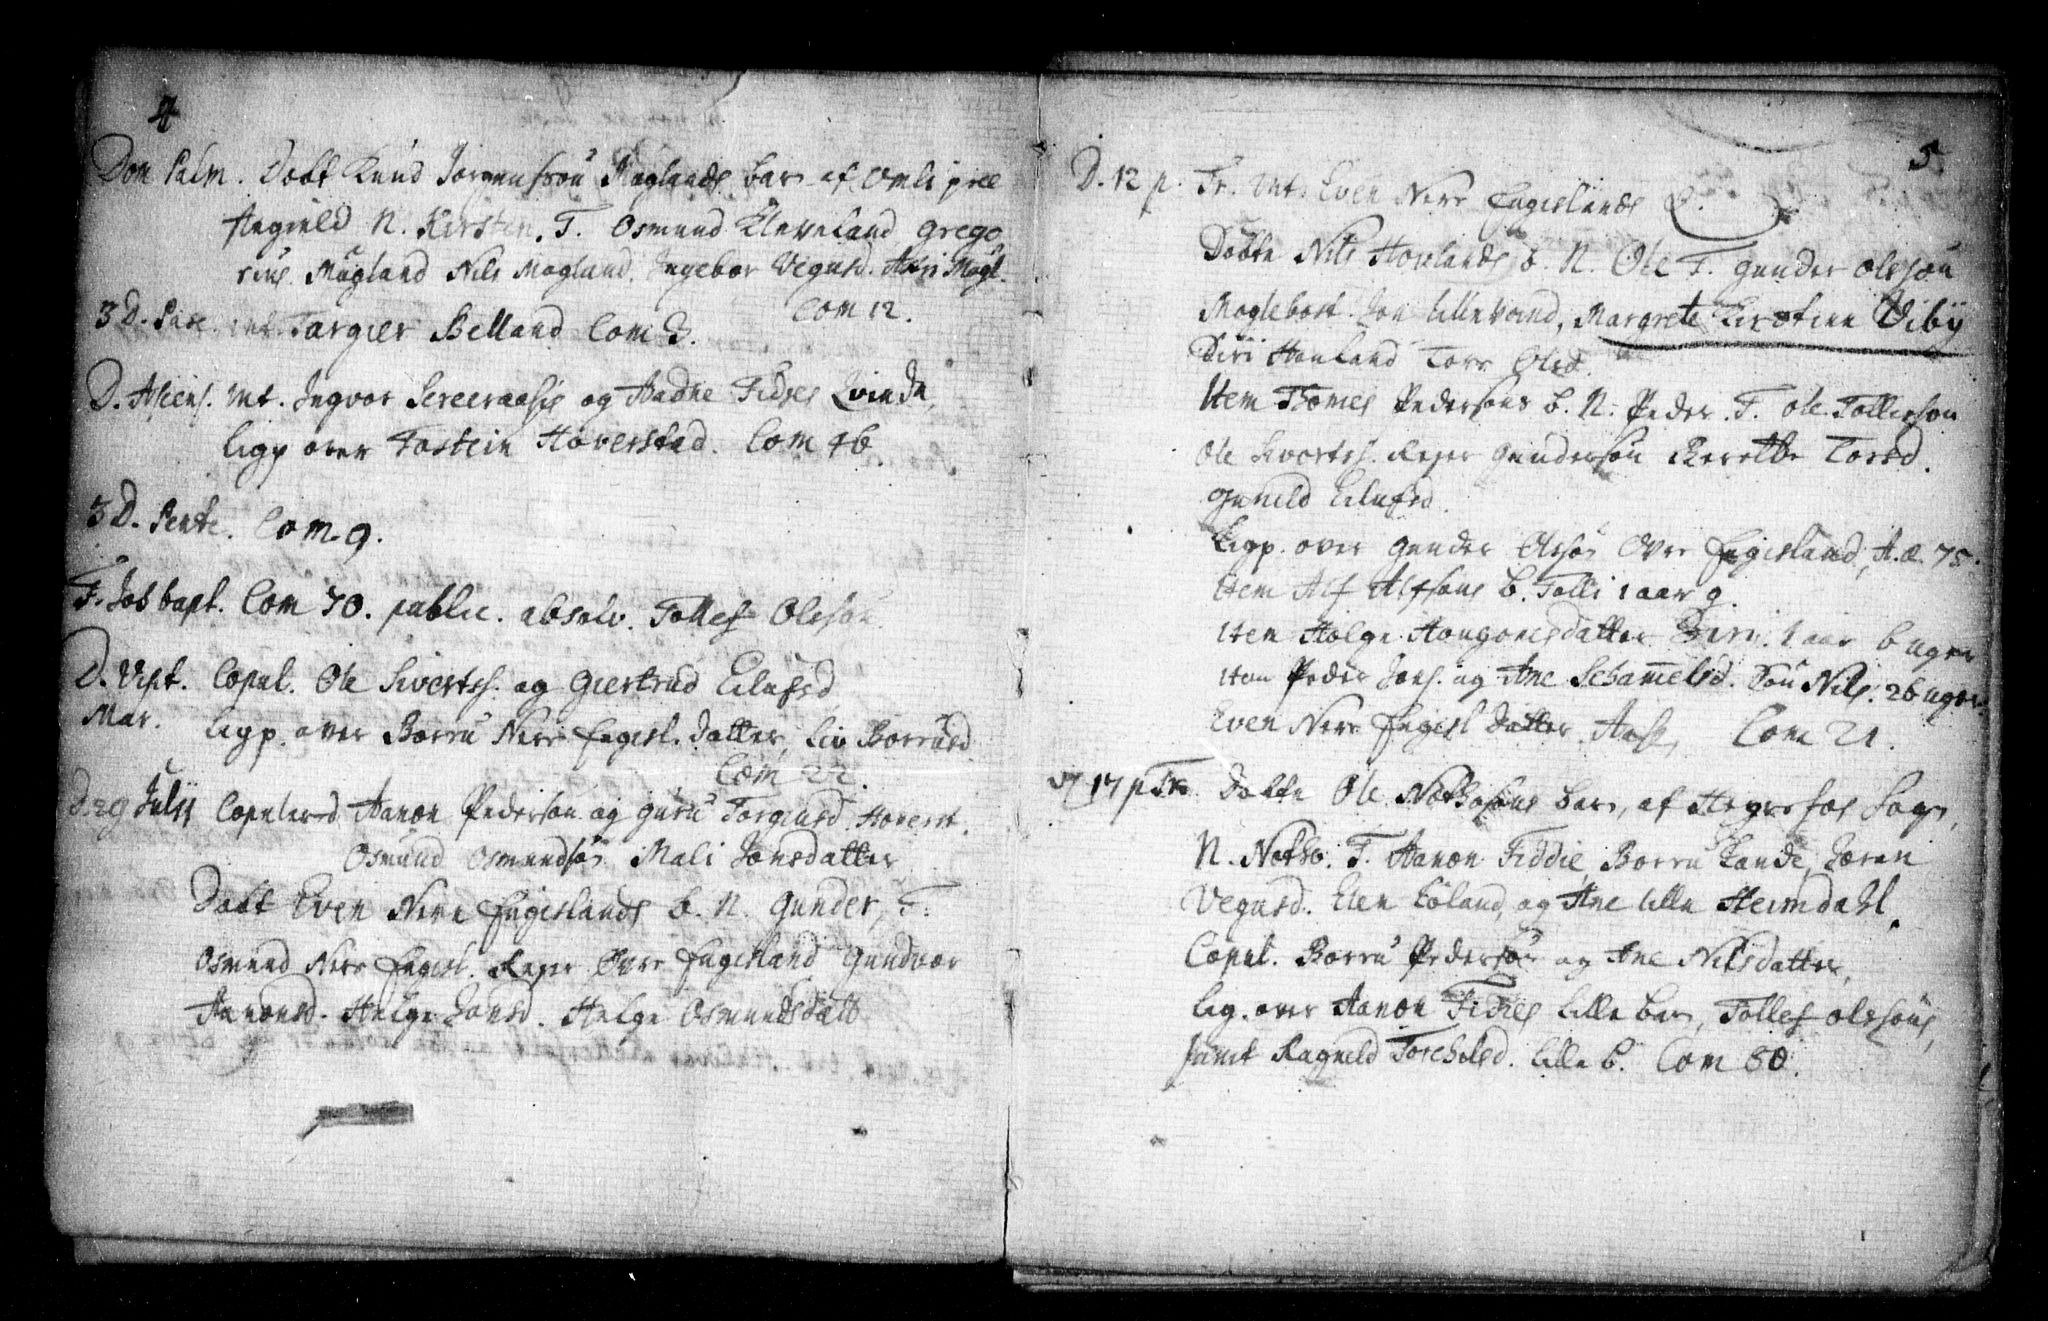 4
Dom Palm. Døbt Knud Jørgenssøn Moglands barn af Omli præ
stegield N. Kirsten. T. Osmund Kleveland Grego
rius Mugland Nils Mogland. Ingebor Vegusd. Mogl.
Com 12.
3 D. Pasc. int. Targier Belland Com 3.
D. Ascens. int. Ingvor og Aadne Fidies Qvinde,
Ligp over Tostein Høverstad. Com 46
3 D. Pente. Com. 9.
F. Joh bapt. Com 70. public. absolv. Tollef Olssøn.
D. Visit. Copul. Ole Sivertss. og Giertrud Eilufsd
Mar. Ligp. over Borru Nere Engesl. datter, Liv Borrusd
Com 22.
D 29 Julij Copulerd Aanon Pederson og Guru Torgiusd. Hoverst.
Osmund Osmundsøn Mali Jonsdatter
Døbt Even Nere Engeslands b. N. Gunder, T.
Osmund Nere Engesl. Rejer Øvre Engesland Gundvor
Aanonsd. Helge Jonsd. Helge Osmundsdatt
5
D. 12 p. Tr. int. Even Nere Engeslands Q.
Døbte Nils Hovlands b. N. Ole T. Gunder Olssøn
Moglebøst. Jon Lillevand, Margrete Kirstine Viby
Siri Honland Tore Olsd.
Item Thomes Pedersøns b. N. Peder. T. Ole Tollefson
Ole Sivortss. Rejer Gundersøn Berethe Torsd.
Gunild Eilufsd.
Ligp. over Gunder Olssøn Øvre Engesland, A. æ. 75.
Item Alf Alfsøns b. Tolli 1 aar g.
Item Helge Hougonsdatter Siri. 1 aar 6 uger
Item Peder Jons. og Ane Schammelsd. Søn Nils. 26 uger
Even Nere Engesl datter Aase, Com 21.
D 17 p Tr. Døbte Ole Notholsøns barn, af Hegrefos Sogn,
N. Notho. T. Aanon Fiddie, Borru Lande, Søren
Vegusd. Elen Egland, og Ane Lille Heimdahl.
Copul. Borru Pedersøn og Ane Nilsdatter,
Lig. over Aanon Fidies Lille barn, Tollef Olssøns,
samt Ragnild Torchelsd. Lille b. Com 80.